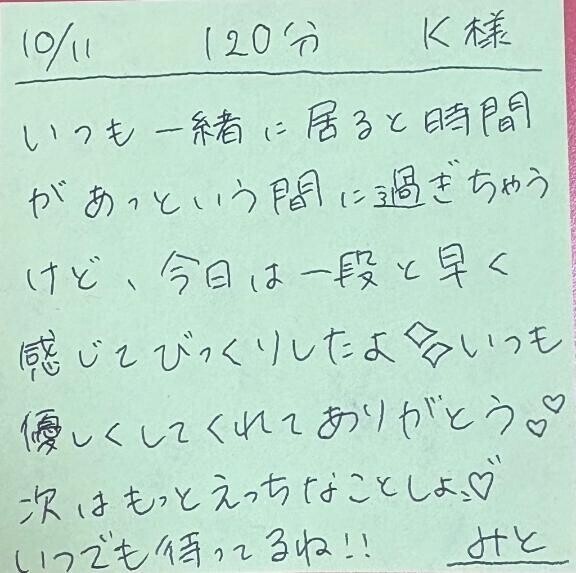 10/11 120分 K様
いつも一緒に居ると時間
があっという間に過ぎちゃう
けど、今日は一段と早く
感じてびっくりしたよ いつも
優しくしてくれてありがとう♡♡
次はもっとえっちなことしよ♡
いつでも待ってるね!! みと